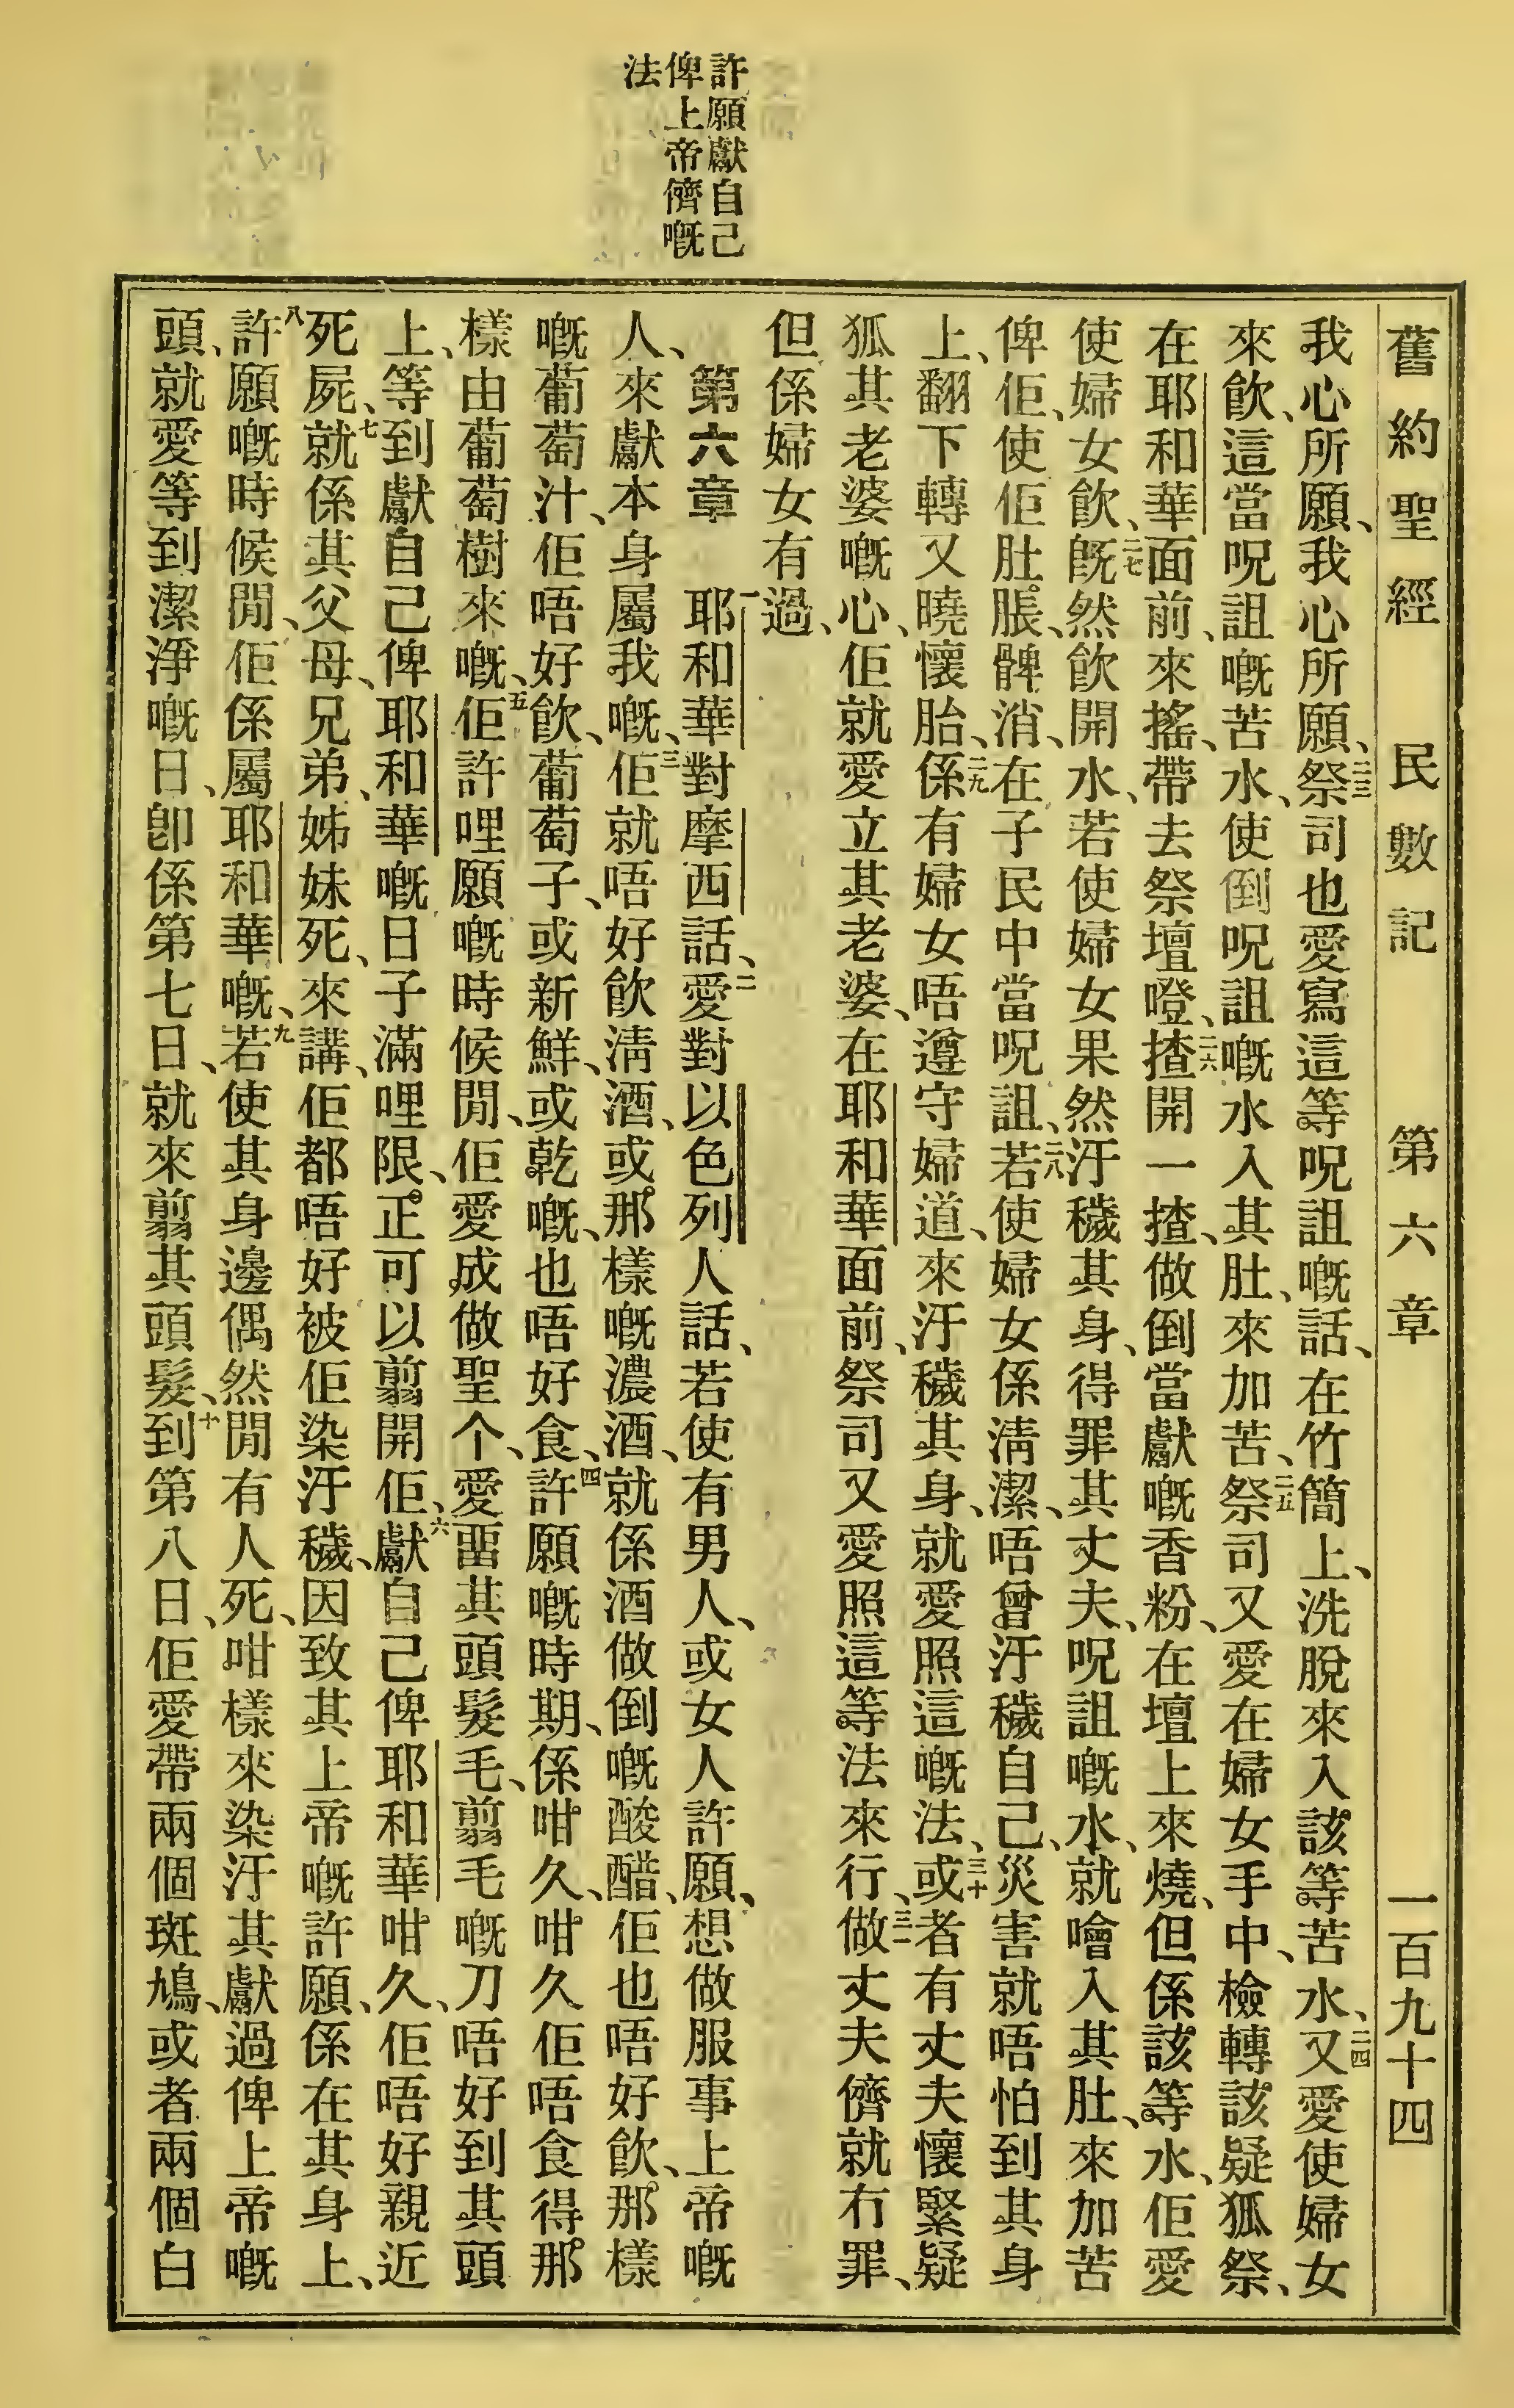 舊約聖經 民數記 第六章 一百九十四
許願獻自己
俾上帝儕嘅
法
我心所願、我心所願、二三祭司也愛寫這等呪詛嘅話、在竹簡上、洗脫來入該等苦水、二四又愛使婦女
來飲、這當呪詛嘅苦水、使倒呪詛嘅水入其肚、來加苦、二五祭司又愛在婦女手中、檢轉該疑狐祭、
在耶和華面前、來搖、帶去祭壇嶝、二六揸開一揸、做倒當獻嘅香粉、在壇上來燒、但係該等水、佢愛
使婦女飲、二七旣然飲開水、若使婦女果然汙穢其身、得罪其丈夫、呪詛嘅水、就噲入其肚、來加苦
俾佢、使佢肚脹、髀消、在子民中當呪詛、二八若使婦女係淸潔、唔曾汙穢自己、災害就唔怕到其身
上、翻下轉又曉懷胎、二九係有婦女唔遵守婦道、來汙穢其身、就愛照這嘅法、三十或者有丈夫懷緊疑
狐其老婆嘅心、佢就愛立其老婆、在耶和華面前、祭司又愛照這等法來行、三一做丈夫儕就冇罪、
但係婦女有過、
第六章 一耶和華對摩西話、二愛對以色列人話、若使有男人、或女人許願、想做服事上帝嘅
人、來獻本身屬我嘅、三佢就唔好飲淸酒、或那樣嘅濃酒、就係酒做倒嘅酸醋、佢也唔好飲、那樣
嘅葡萄汁、佢唔好飲、葡萄子、或新鮮、或乾嘅、也唔好食、四許願嘅時期、係咁久、咁久佢唔食得那
樣由葡萄樹來嘅、五佢許哩願嘅時候閒、佢愛成做聖个、愛畱其頭髮毛、翦毛嘅刀唔好到其頭
上、等到獻自己俾耶和華嘅日子滿哩限、正可以翦開佢、六獻自己俾耶和華咁久、佢唔好親近
死屍、七就係其父母、兄弟、姊妹死、來講、佢都唔好被佢染汙穢、因致其上帝嘅許願、係在其身上、
八許願嘅時候閒、佢係屬耶和華嘅、九若使其身邊偶然閒有人死、咁樣來染汙其獻過俾上帝嘅
頭、就愛等到潔淨嘅日、卽係第七日、就來翦其頭髮、十到第八日、佢愛帶兩個斑鳩、或者兩個白